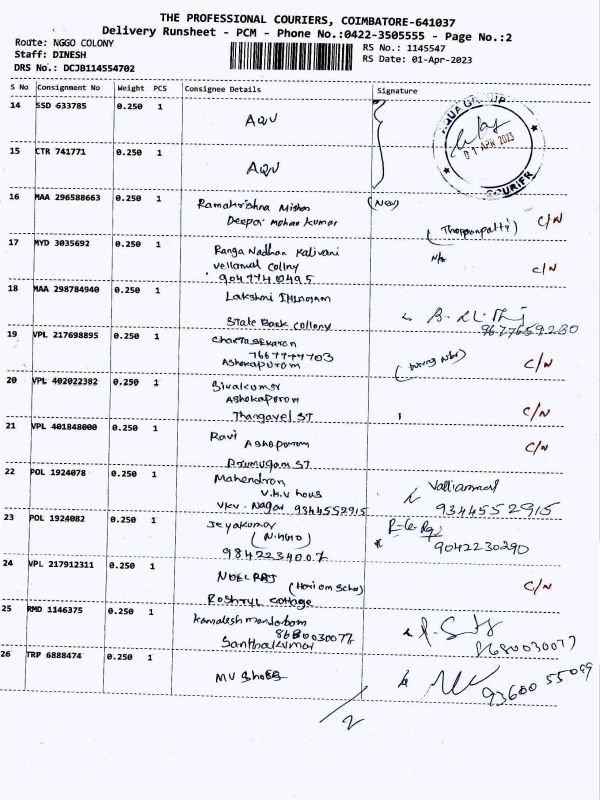 THE PROFESSIONAL COURIERS, COIMBATORE-641037
Delivery Runsheet - PCM - Phone No.:0422-3505555 - Page No.:2
Route: NGGO COLONY
RS No.: 1145547
Staff: DINESH
RS Date: 01-Apr-2023
DRS No.: DCJB114554702
S No Consignment No Weight PCS Consignee Details Signature
14 SSD 633785 0.250 1 AQU
01 APR 2023
15 CTR 741771 0.250 1 AQU
16 MAA 296588663 0.250 1 Ramakrishna (New)
Deepa mohan kumar C/N
17 MYD 3035692 0.250 1 Ranga Nadhan Kalivani N/A
vellamal collny C/N
18 MAA 298784940 0.250 1 Lakshmi
State Bank collony 9677659280
19 VPL 217698895 0.250 1
7667777703 (Wrong Nbr) C/N
Ashokapurom
20 VPL 402022382 0.250 1 Sivakumar
Ashokaporom C/N
Thangavel ST
21 VPL 401848000 0.250 1 Ravi C/N
Ashoporom
Arumugam ST
22 POL 1924078 0.250 1 Mahendron Valliammal
V.K.V hous
VKV. Nagar 9344552915 9344552915
23 POL 1924082 0.250 1 Jeyakumar
(N.GGO) 9042230290
9842234007
24 VPL 217912311 0.250 1 NOEL RAJ
(Hari om Scho) C/N
cottage
25 RMD 1146375 0.250 1 Kamalesh
8680030077 8680030077
Santhakumar
26 TRP 6888474 0.250 1 MV Shoes 93600 55099
2